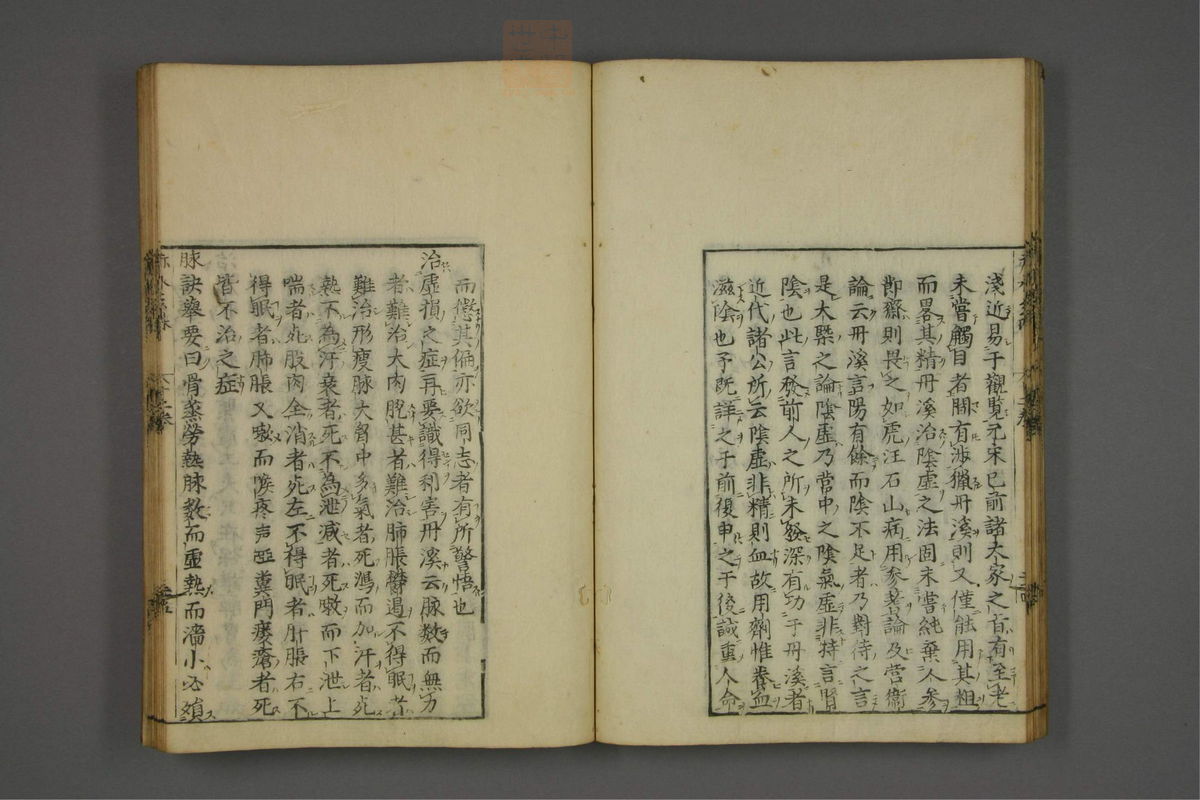 淺近易于觀覽元宋已前諸大家之旨有至老
未嘗觸目者間有涉獵丹溪則又僅能用其粗
而畧其精丹溪治陰虛之法固未嘗純棄人參
節齋則畏之如虎汪石山病用參芪論及營衛
論云丹溪言陽有餘而陰不足者乃對待之言
是大槩之論陰虛乃營中之陰氣虛非特言腎
陰也此言發前人之所未發深有功于丹溪者
近代諸公所云陰虛非精則血故用劑惟養血
滋陰也予既詳之于前復申之于後誠重人命
而懲其偏亦欲同志者有所警悟也
治虛損之症再要識得利害丹溪云脉數而無力
者難治大肉脫甚者難治肺脹鬱遏不得眠者
難治形瘦脉大胷中多氣者死瀉而加汗者死
熱不為汗衰者死不為泄減者死嗽而下泄上
喘者死股肉全消者死左不得眠者肝脹右不
得眠者肺脹又嗽而喉疼声啞糞門瘻瘡者死
皆不治之症
脉訣舉要曰骨蒸勞熱脉數而虛熱而濇小必殞